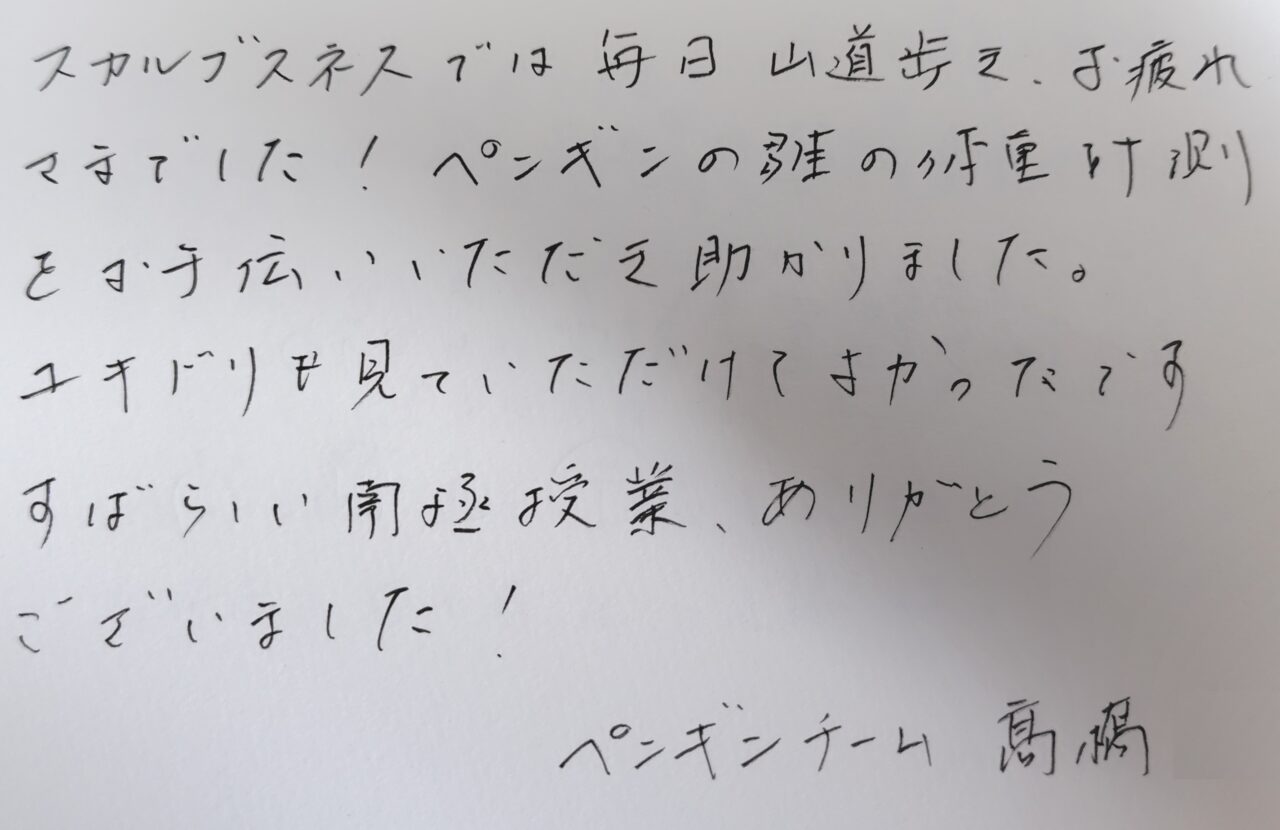 スカルブスネスでは毎日山道歩き、お疲れ
さまでした！ペンギンの雛の体重計測
をお手伝いいただき助かりました。
ユキドリも見ていただけてよかったです
すばらしい南極授業、ありがとう
ございました！
ペンギンチーム 髙橋